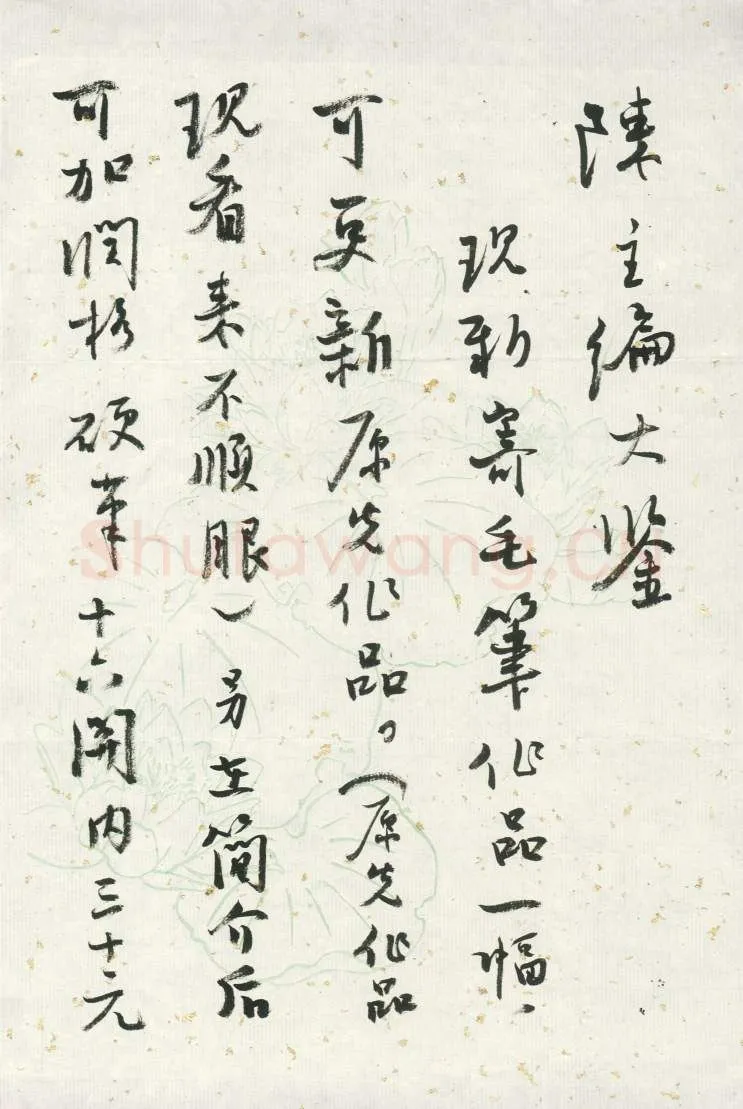 陳主编大鉴
现新寄毛筆作品一幅、
可更新原先作品。（原先作品
现看来不順眼）另在簡介后
可加潤格硬筆十六開内三十元
Shufawang.cn